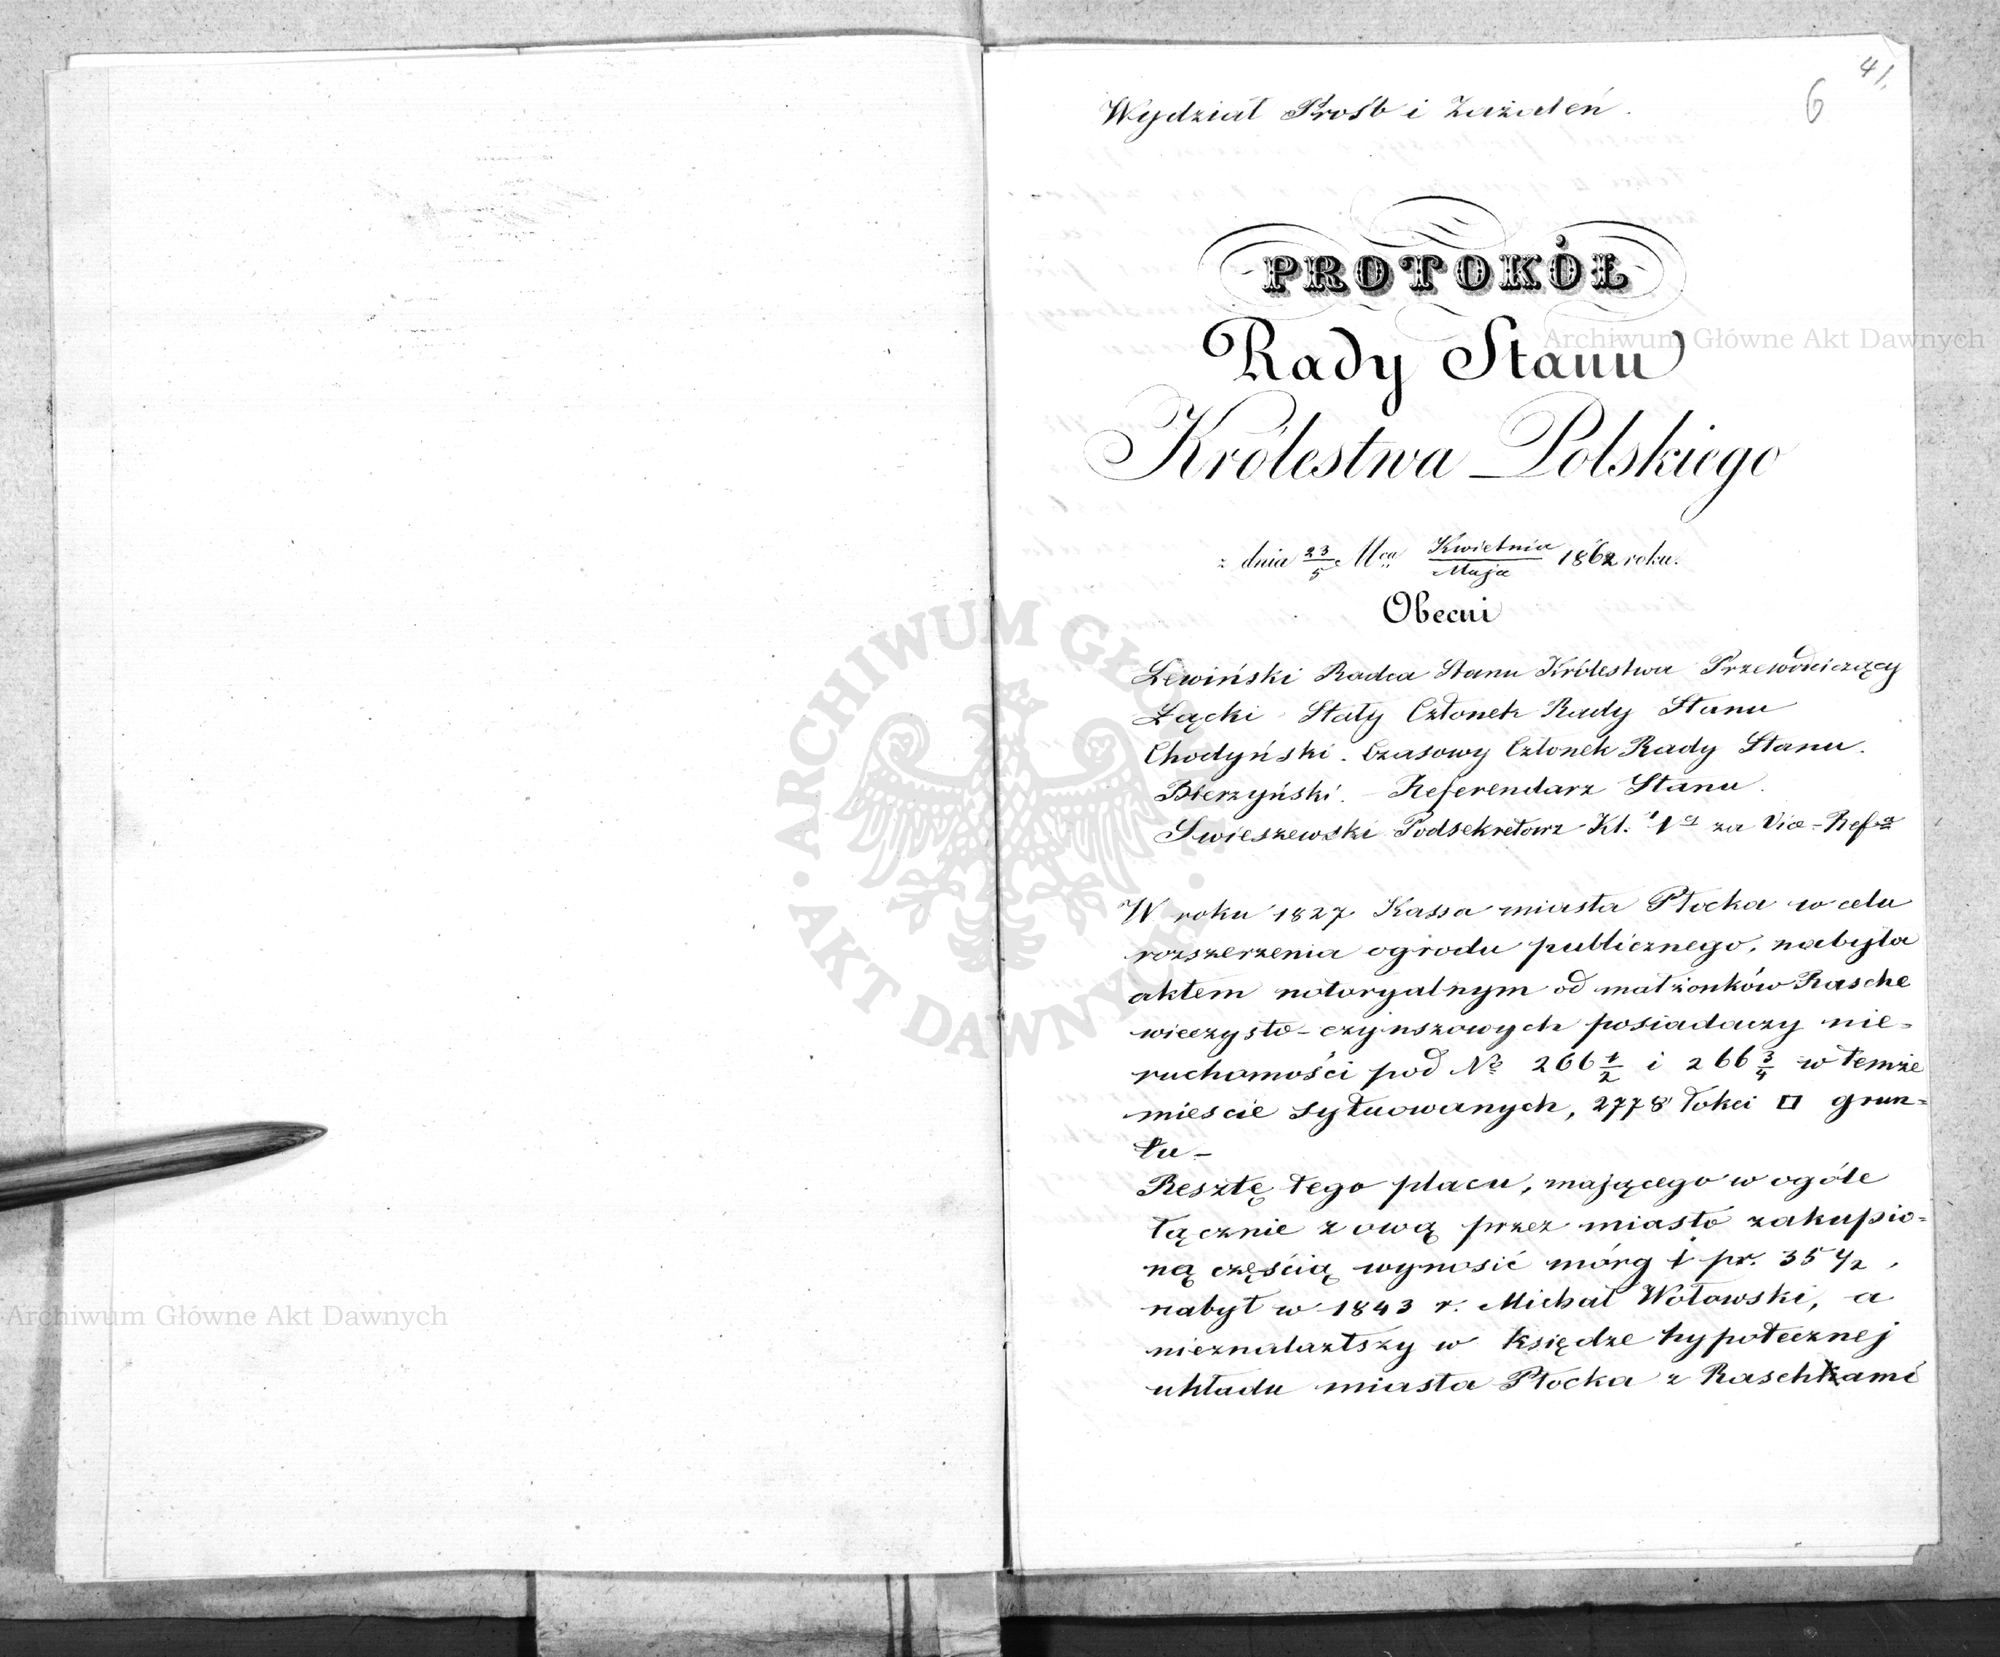 41.
6
Wydział Prośb i Zażaleń.
PROTOKÓŁ
Rady Stanu
Królestwa Polskiego
z dnia 23/5 Mca Kwietnia/Maja 1862 roku.
Obecni
Lewiński Radca Stanu Królestwa Przewodniczący
Łącki Stały Członek Rady Stanu
Chodyński. Czasowy Członek Rady Stanu.
Bierzyński. Referendarz Stanu.
Swieszewski Podsekretarz Kl. 1ej za Vice-Refa
W roku 1827 Kassa miasta Płocka w celu
rozszerzenia ogrodu publicznego, nabyła
aktem notoryalnym od małżonków Rasche
wieczysto-czynszowych posiadaczy nie=
ruchomości pod No 266 1/2 i 266 3/4 w temże
miescie sytuowanych, 2778 łokci □ grun=
tu–
Resztę tego placu, mającego w ogóle
łącznie z ową przez miasto zakupio=
ną częścią wynosić mórg 1 pr. 35 1/2,
nabył w 1843 r. Michał Wołowski, a
nieznalazłszy w księdze hypotecznej
układu miasta Płocka z Raschkami
Archiwum Główne Akt Dawnych
Archiwum Główne Akt Dawnych
ARCHIWUM GŁÓWNE AKT DAWNYCH